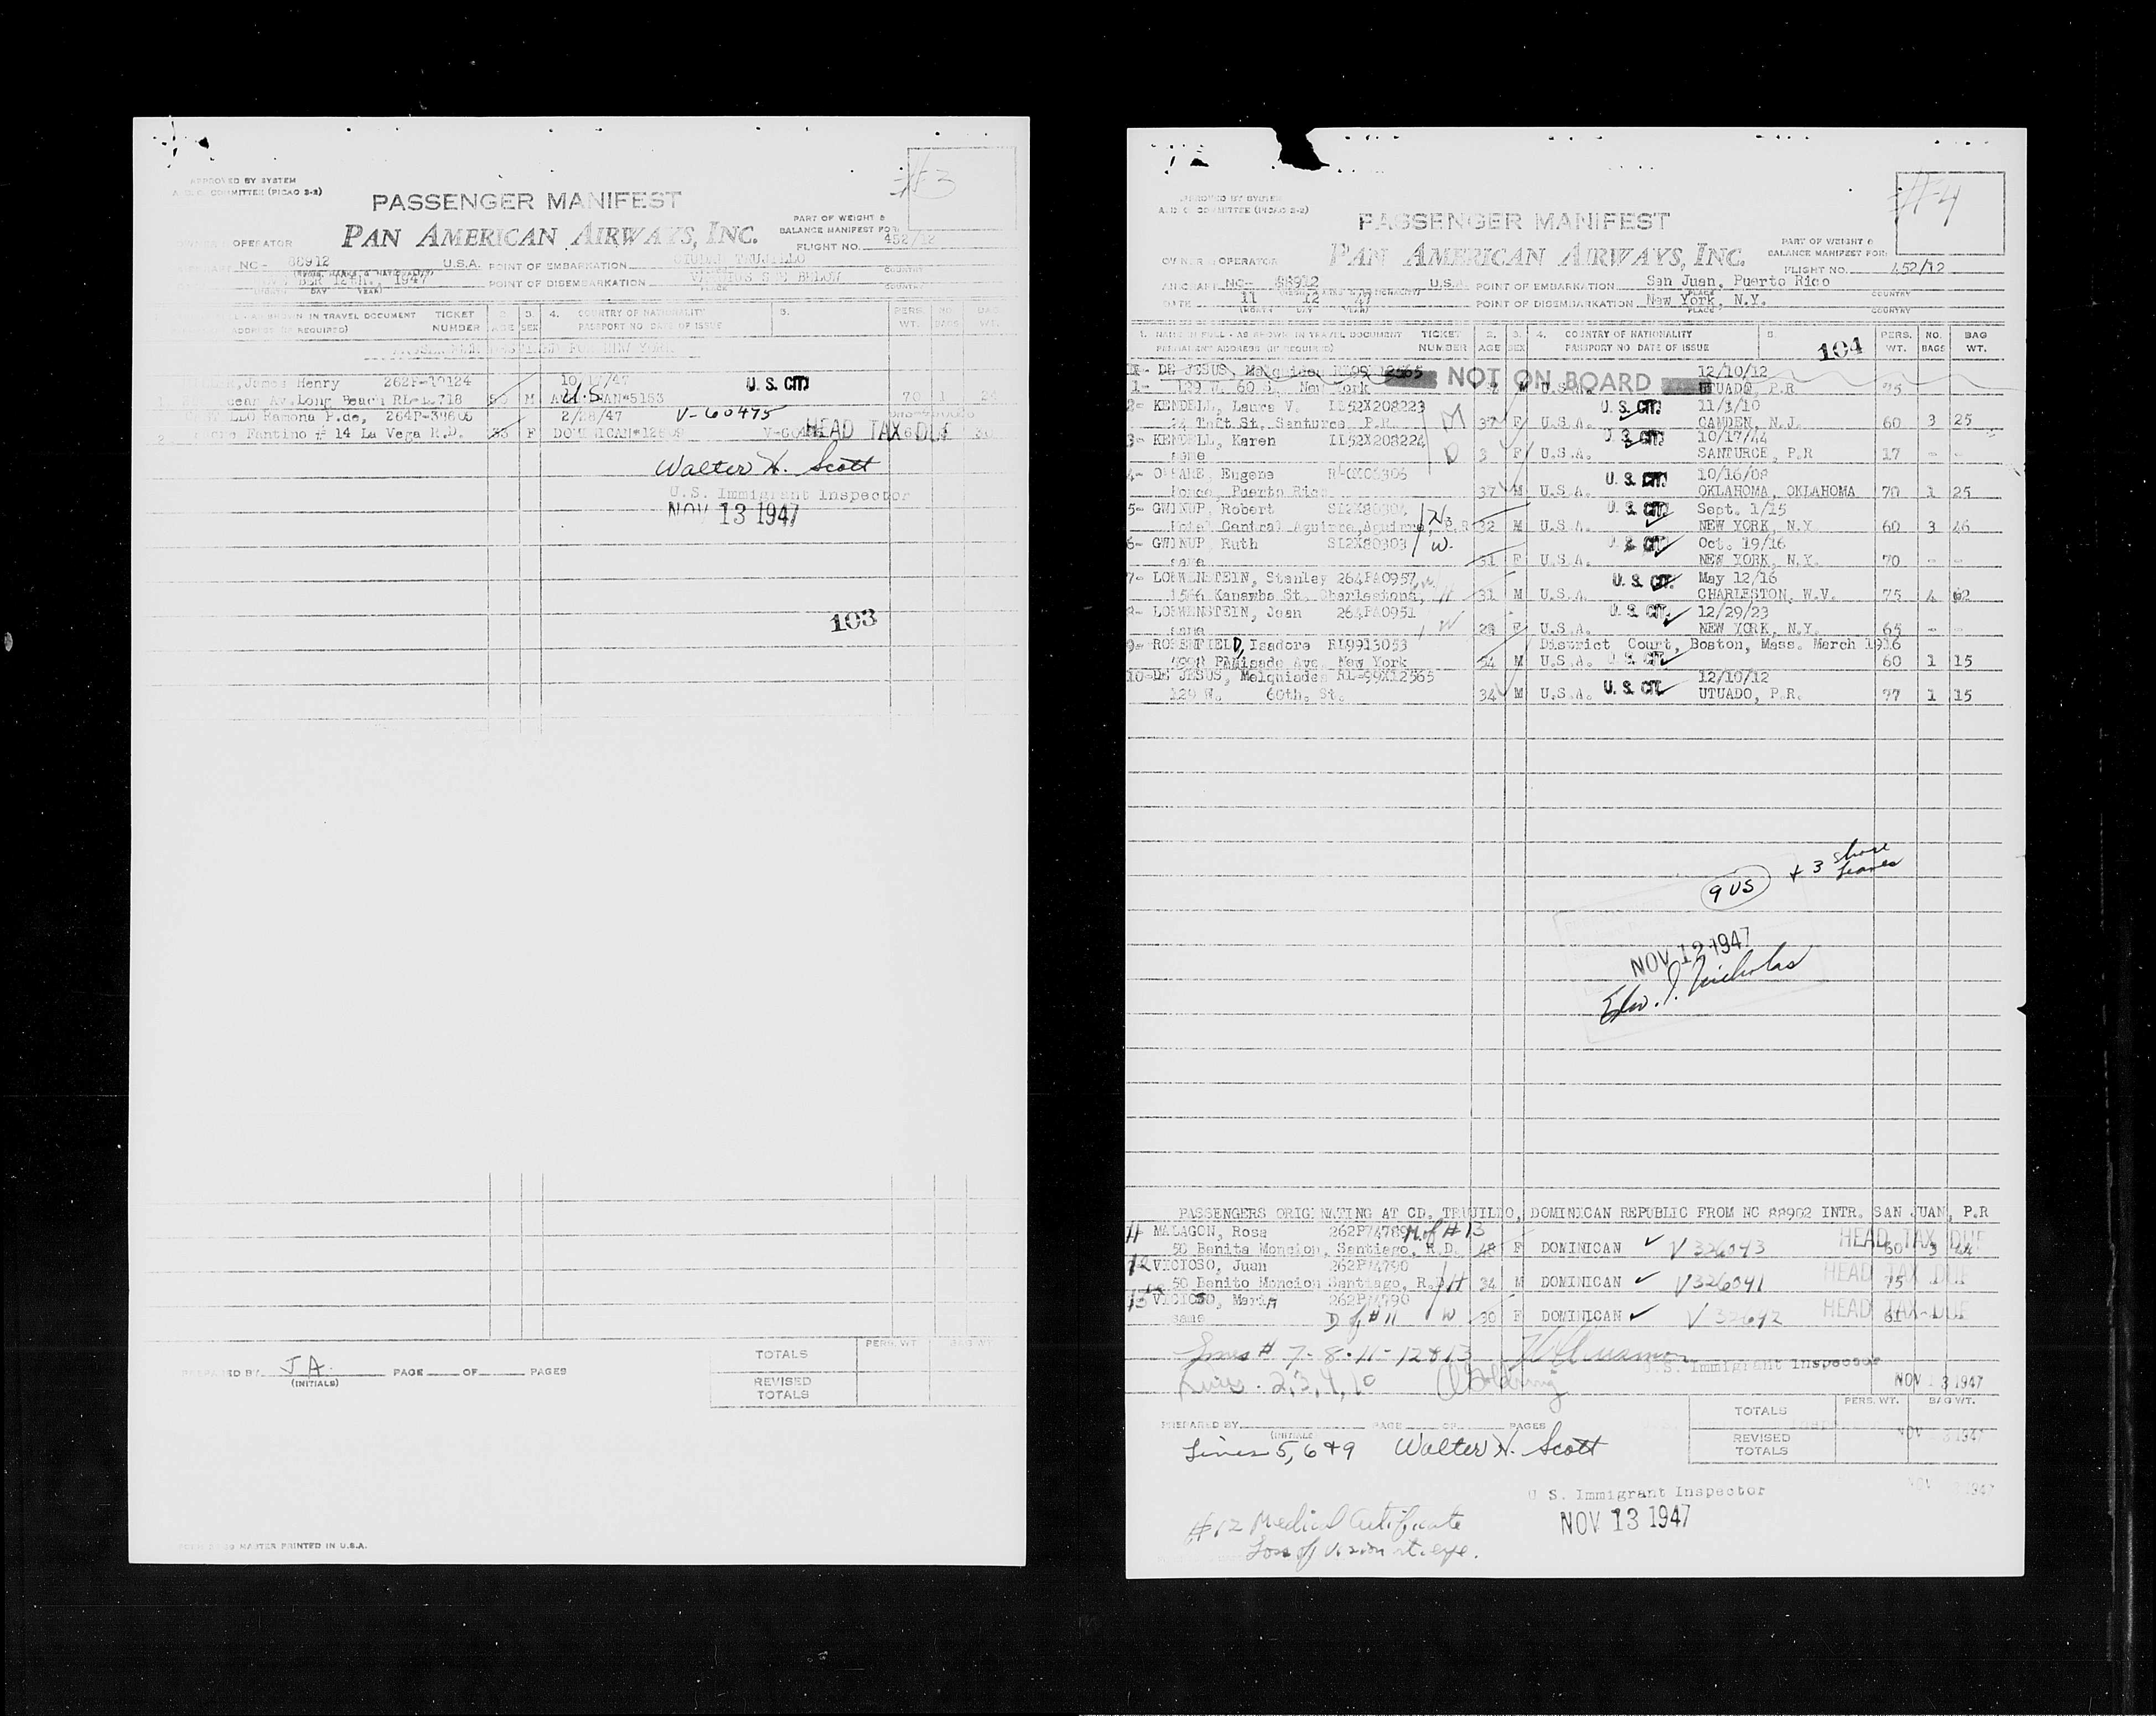 #3
APPROVED BY SYSTEM
COMMITTEE (PICAO 2-2)
PASSENGER MANIFEST
PAN AMERICAN AIRWAYS, INC.
PART OF WEIGHT &
BALANCE MANIFEST FOR:
FLIGHT NO. 452/12
OPERATOR
NC- 88912 U.S.A. POINT OF EMBARKATION CIUDAD TRUJILLO
12TH. 1947 POINT OF DISEMBARKATION VARIOUS SEE BELOW
COUNTRY
DAY YEAR PLACE COUNTRY
AS SHOWN IN TRAVEL DOCUMENT TICKET 2. 3. 4. COUNTRY OF NATIONALITY 5. PERS. NO. BAG
ADDRESS (IF REQUIRED) NUMBER AGE SEX PASSPORT NO DATE OF ISSUE WT. BAGS WT.
FOR NEW YORK
James Henry 262P-10124 10/17/47 U.S. CIT.
Ocean Av. Long Beach M U.S 5153 70 1
Ramona P.de, 2/28/47 V-60475
Fantino # 14 La Vega R.D. F DOMINICAN HEAD TAX DUE
Walter H. Scott
U.S. Immigrant Inspector
NOV 13 1947
103
PREPARED BY J A. PAGE OF PAGES
(INITIALS)
TOTALS
REVISED
TOTALS
PERS. WT. BAG WT.
MASTER PRINTED IN U.S.A.
#4
APPROVED BY SYSTEM
COMMITTEE (PICAO 2-2)
PASSENGER MANIFEST
PAN AMERICAN AIRWAYS, INC.
PART OF WEIGHT &
BALANCE MANIFEST FOR:
FLIGHT NO. 452/12
OWNER OPERATOR
AIRCRAFT NC- 88912 U.S.A. POINT OF EMBARKATION San Juan, Puerto Rico
DATE 11 12 47 POINT OF DISEMBARKATION New York, N.Y.
PLACE COUNTRY
1. NAME IN FULL - AS SHOWN IN TRAVEL DOCUMENT TICKET 2. 3. 4. COUNTRY OF NATIONALITY 5. PERS. NO. BAG
PERMANENT ADDRESS (IF REQUIRED) NUMBER AGE SEX PASSPORT NO DATE OF ISSUE 104 WT. BAGS WT.
DE JESUS, Melquiades NOT ON BOARD 12/10/12
1- 129 W. 60 S. New York M U.S.A. UTUADO, P.R 75
2- KENDELL, Laura V. II52X208223 M U.S. CIT. 11/3/10
24 Taft St. Santurce, P.R. 37 F U.S.A. CAMDEN, N.J. 60 3 25
3- KENDELL, Karen II52X208224 U.S. CIT. 10/17/44
same D 3 F U.S.A. SANTURCE, P.R 17 - -
4- O'FARE, Eugene U.S. CIT. 10/16/08
Ponce, Puerto Rico 37 M U.S.A. OKLAHOMA, OKLAHOMA 70 1 25
5- GWINUP, Robert SI2X80304 H. U.S. CIT. Sept. 1/15
Hotel Central Aguirre, Aguirre, P.R 32 M U.S.A. NEW YORK, N.Y. 60 3 46
6- GWINUP, Ruth SI2X80303 W. U.S. CIT. Oct. 19/16
same 31 F U.S.A. NEW YORK, N.Y. 70 - -
7- LOEWENSTEIN, Stanley 264PA0957 U.S. CIT. May 12/16
1566 Kanawha St. Charleston, H 31 M U.S.A. CHARLESTON, W.V. 75 4 62
8- LOEWENSTEIN, Jean 264PA0951 U.S. CIT. 12/29/23
same W F U.S.A. NEW YORK, N.Y. 65 - -
9- ROSENFIELD, Isadore RL9913053 District Court, Boston, Mass. March 1916
Palisade Ave. New York 54 M U.S.A. U.S. CIT. 60 1 15
10- DE JESUS, Melquiades RL-99X12565 12/10/12
129 W. 60th. St. 34 M U.S.A. U.S. CIT. UTUADO, P.R. 77 1 15
9 US + 3 shore leaves
NOV 12 1947
Edw. J. Nicholas
PASSENGERS ORIGINATING AT CD. TRUJILLO, DOMINICAN REPUBLIC FROM NC 88902 INTR. SAN JUAN, P.R
11 MALAGON, Rosa 262P74789 M. of #13
50 Benita Moncion, Santiago, R.D. 48 F DOMINICAN V 326043 HEAD TAX DUE 60 3 44
12 VICIOSO, Juan 262P74790
50 Benito Moncion Santiago, R.D H 34 M DOMINICAN V326041 HEAD TAX DUE 75
13 VICIOSO, Maria 262P74790
same D of #11 W 30 F DOMINICAN V 32642 HEAD TAX DUE 61
Lines # 7-8-11-12 & 13
U.S. Immigrant Inspector
Lines. 2,3,4,10
NOV 13 1947
PREPARED BY PAGE OF PAGES
(INITIALS
TOTALS
REVISED
TOTALS
PERS. WT. BAG WT.
NOV 1947
Lines 5, 6 & 9 Walter H. Scott
NOV 1947
U S. Immigrant Inspector
NOV 13 1947
#12 Medical Certificate
Loss of vision rt. eye.